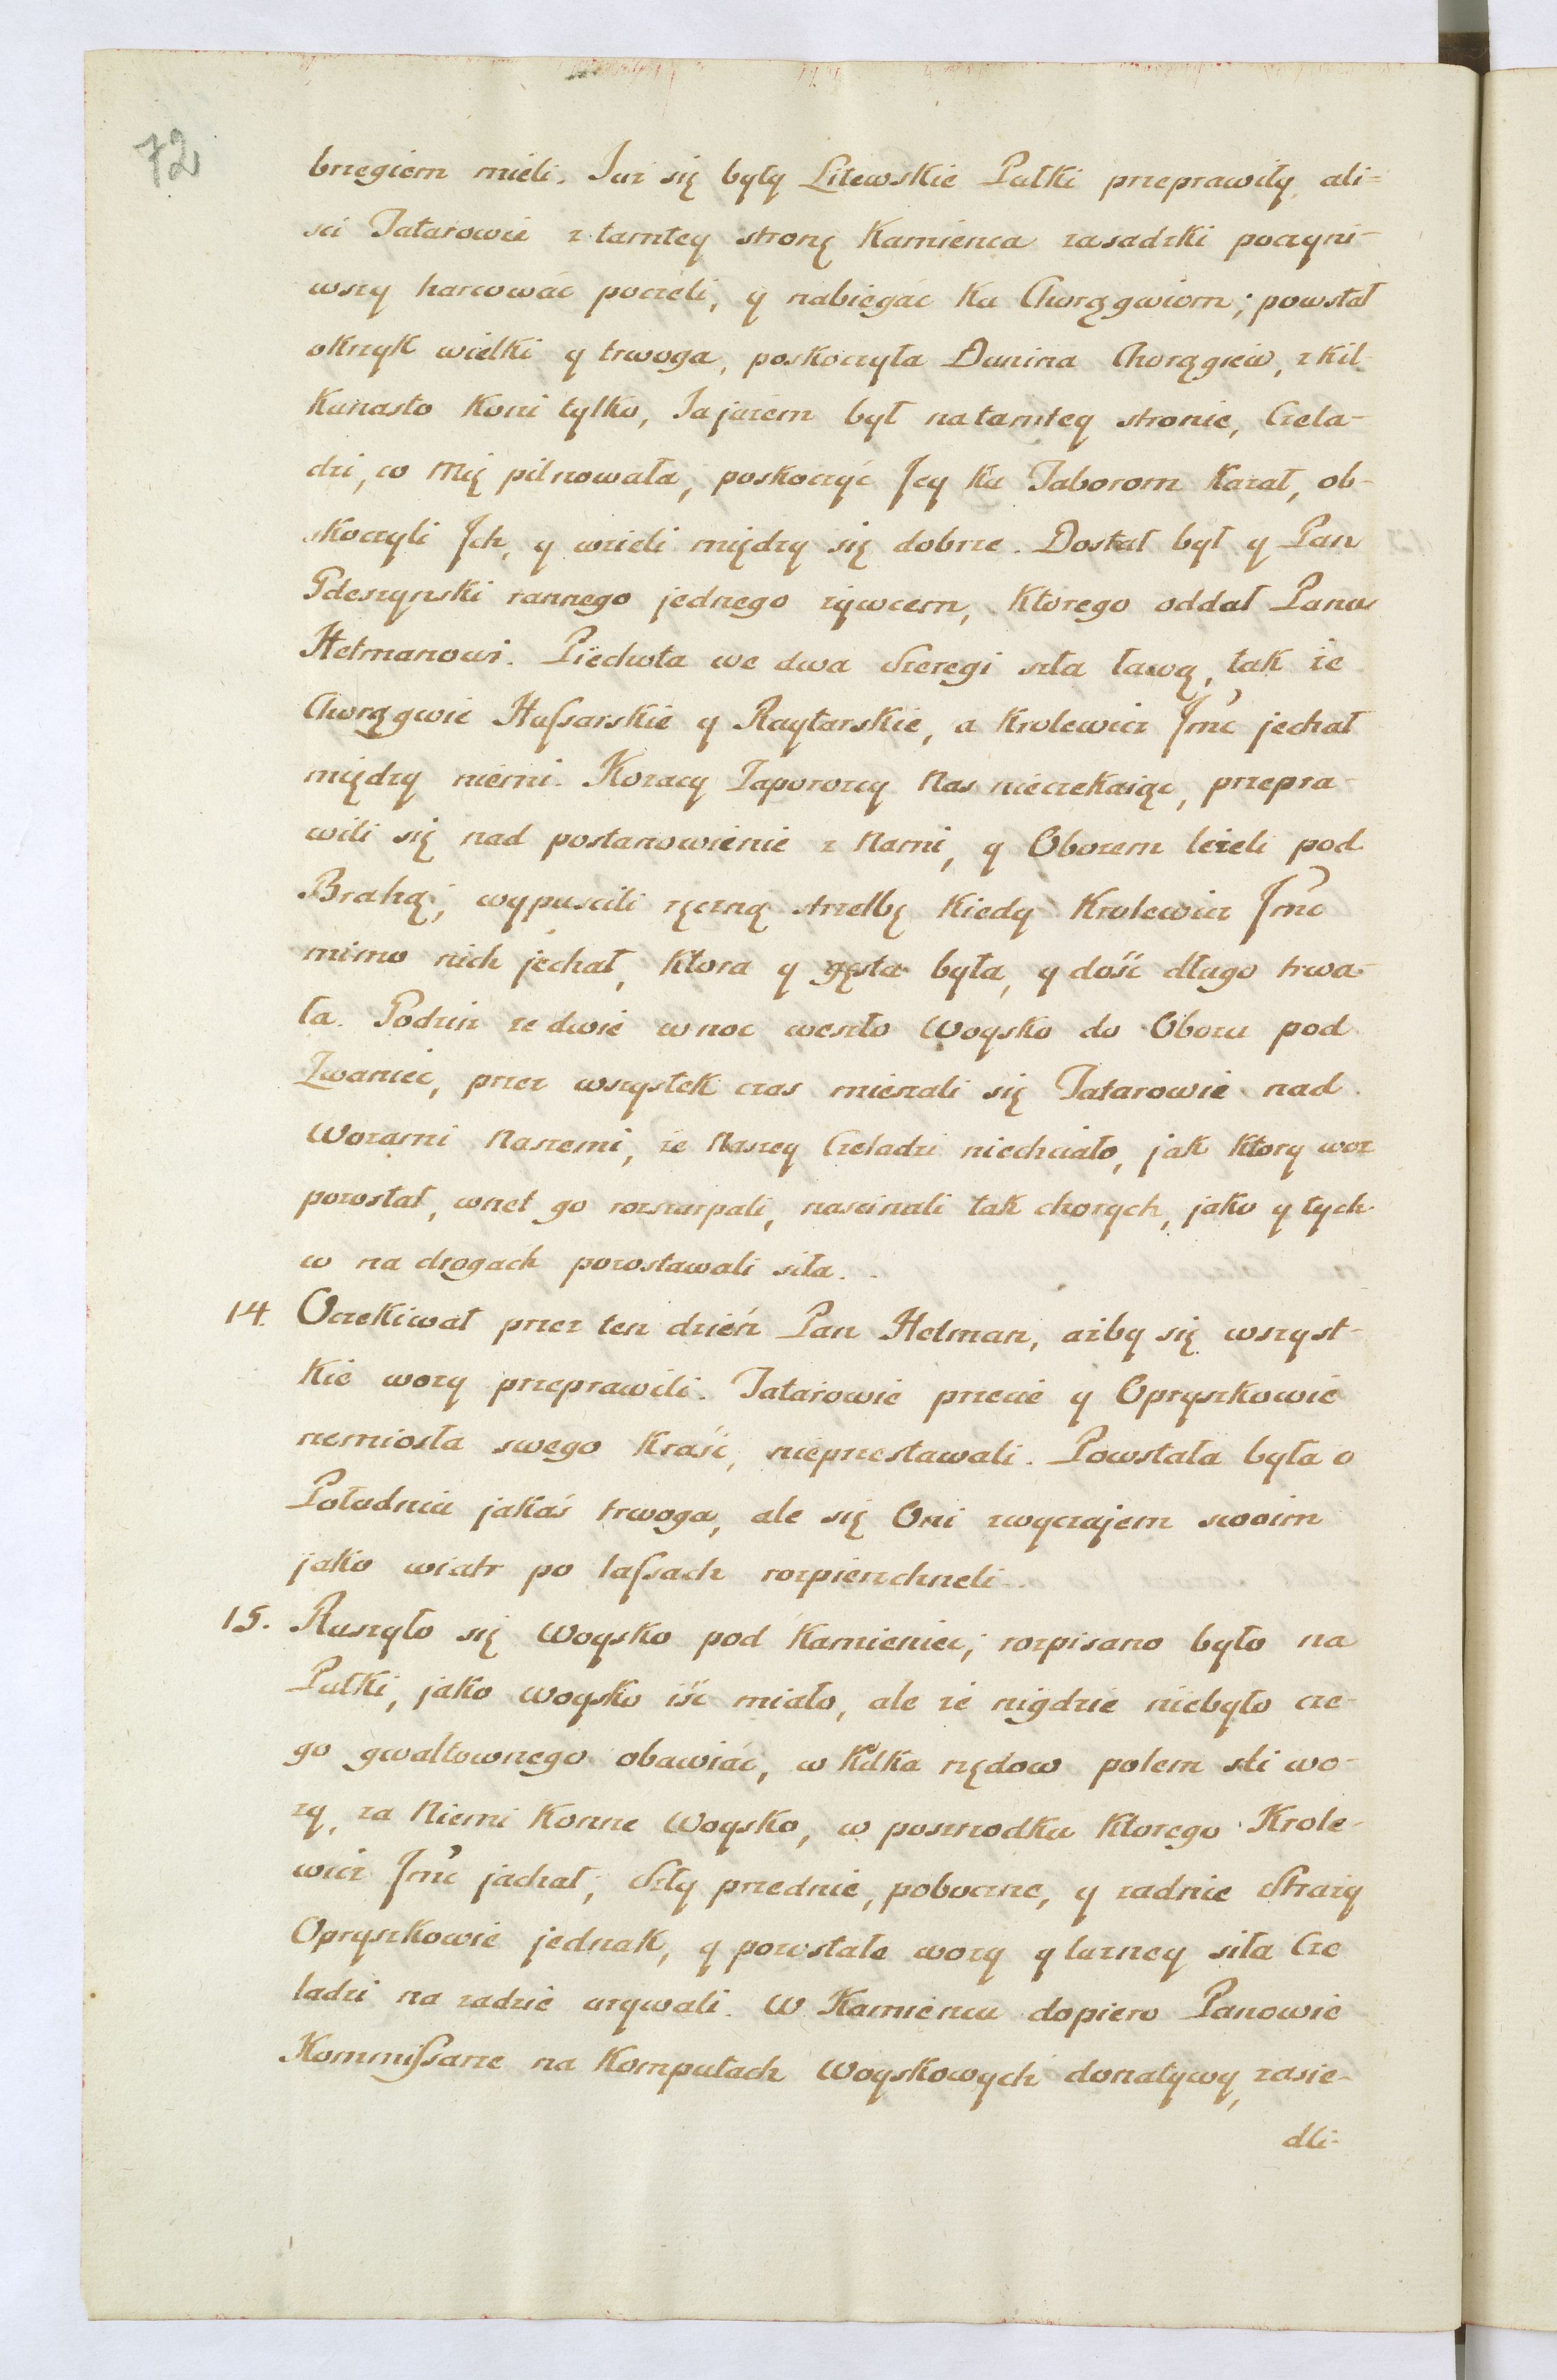 72
brzegiem mieli. Iuz się były Litewskie Pułki przeprawiły, ali=
sci Tatarowie z tamtey stronę Kamienca zasadzki poczyni-
wszy harcowác poczeli, y nabiegác ku Chorągwiom; powstał
okrzyk wielki y trwoga, poskoczyła Dunina Chorągiew, z kil-
kunasto koni tylko, Ia jużem był na tamtey stronie, Czela-
dzi, co Mię pilnowała, poskoczyć Jey ku Taborom kazał, ob-
skoczyli Jch, y wzieli między się dobrze. Dostał był y Pan
Gdeszynski rannego jednego zywcem, ktorego oddał Panu
Hetmanowi. Piechota we dwa Szeregi szła ławą, tak ze
Chorągwie Hussarskie y Raytarskie, a Krolewicz Jmc jechał
między niemi. Kozacy Zaporozcy Nas nieczekaiąc, przepra-
wili się nad postanowienie z Nami, y Obozem lezeli pod
Brahą; wypuscili ręczną strzelbę kiedy Krolewicz Jmc
mimo nich jechał, ktora y gęsta była, y dość długo trwa-
ła. Godzin ze dwie w noc weszło Woysko do Obozu pod
Zwaniec, przez wszystek czas mieszali się Tatarowie nad
Wozami Naszemi, ze Naszey Czeladzi niechciało, jak ktory woz
pozostał, wnet go rozszarpali, nascinali tak chorych, jako y tych
co na drogach pozostawali siła.
14. Oczekiwał przez ten dzień Pan Hetman, azby się wszyst-
kie wozy przeprawili. Tatarowie przecie y Opryszkowie
rzemiosła swego kraść, nieprzestawali. Powstała była o
Południu jakaś trwoga, ale się Oni zwyczajem swoim
jako wiatr po lassach rozpierzchneli.
15. Ruszyło się Woysko pod Kamieniec; rozpisano było na
Pułki, jako woysko iśc miało, ale ze nigdzie niebyło cze-
go gwałtownego obawiác, w kilka rzędow polem szli wo-
zy, za Niemi konne Woysko, w poszrodku ktorego Krole-
wicz Jmc jachał; Szły przednie, poboczne, y zadnie Strazy
Opryszkowie jednak, y pozostałe wozy y luzney siła Cze
ladzi na zadzie urywali. W Kamiencu dopiero Panowie
Kommissarze na Komputach Woyskowych donatywy, zasie-
dli-